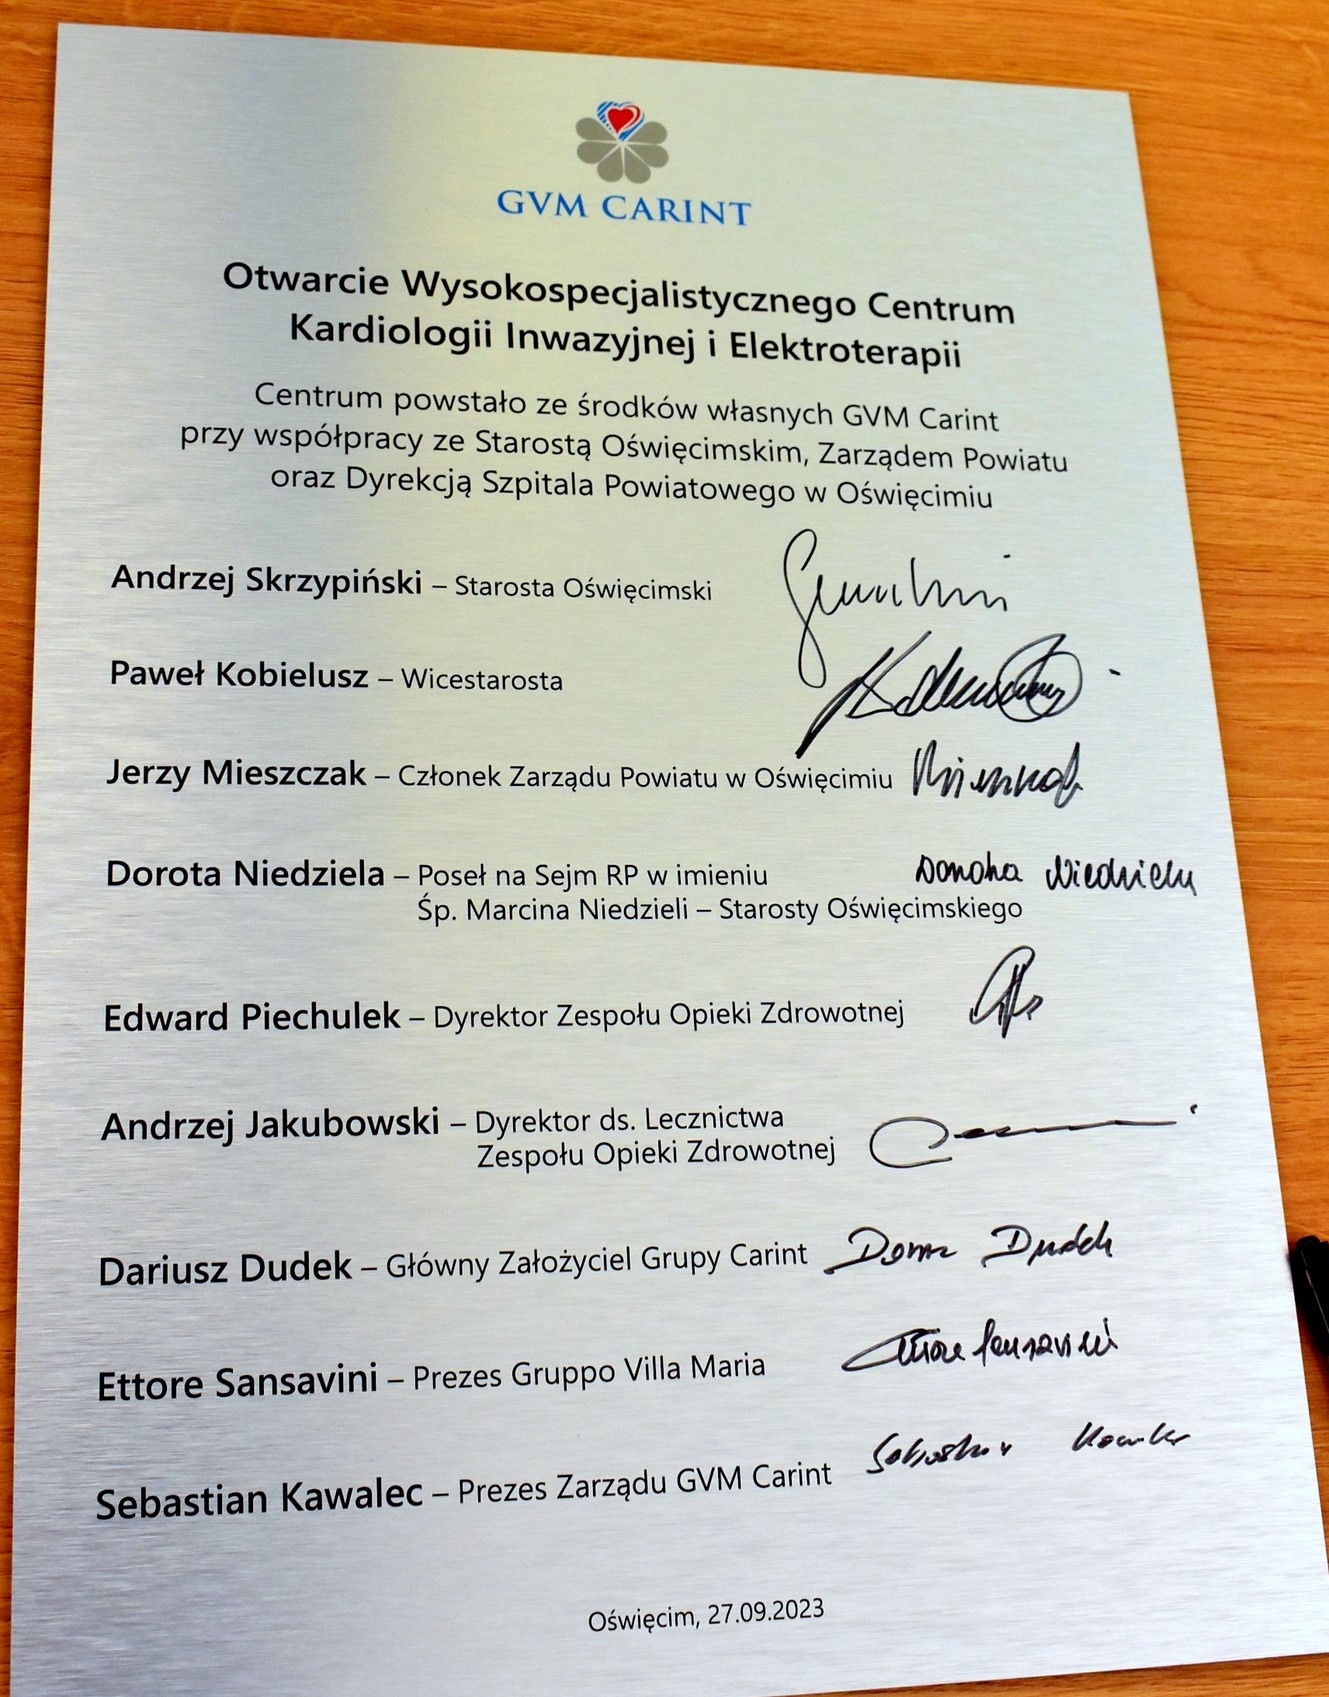 GVM CARINT
Otwarcie Wysokospecjalistycznego Centrum
Kardiologii Inwazyjnej i Elektroterapii
Centrum powstało ze środków własnych GVM Carint
przy współpracy ze Starostą Oświęcimskim, Zarządem Powiatu
oraz Dyrekcją Szpitala Powiatowego w Oświęcimiu
Andrzej Skrzypiński – Starosta Oświęcimski
Paweł Kobielusz – Wicestarosta
Jerzy Mieszczak – Członek Zarządu Powiatu w Oświęcimiu
Dorota Niedziela – Poseł na Sejm RP w imieniu Dorota Niedziela
Śp. Marcina Niedzieli – Starosty Oświęcimskiego
Edward Piechulek – Dyrektor Zespołu Opieki Zdrowotnej
Andrzej Jakubowski – Dyrektor ds. Lecznictwa
Zespołu Opieki Zdrowotnej
Dariusz Dudek – Główny Założyciel Grupy Carint Dudek
Ettore Sansavini – Prezes Gruppo Villa Maria
Sebastian Kawalec – Prezes Zarządu GVM Carint
Oświęcim, 27.09.2023